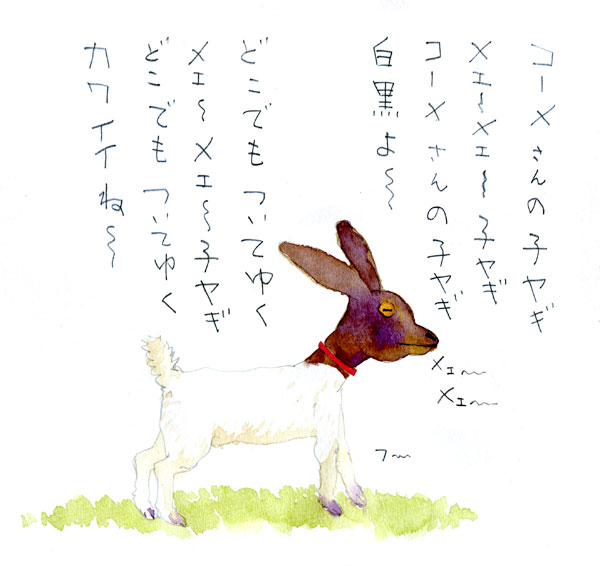 コーメさんの子ヤギ
メェ〜メェ〜子ヤギ
コーメさんの子ヤギ
白黒よ〜〜
どこでもついてゆく
メェ〜メェ〜子ヤギ
どこでもついてゆく
カワイイね〜〜
メェ〜
メェ〜
フ〜